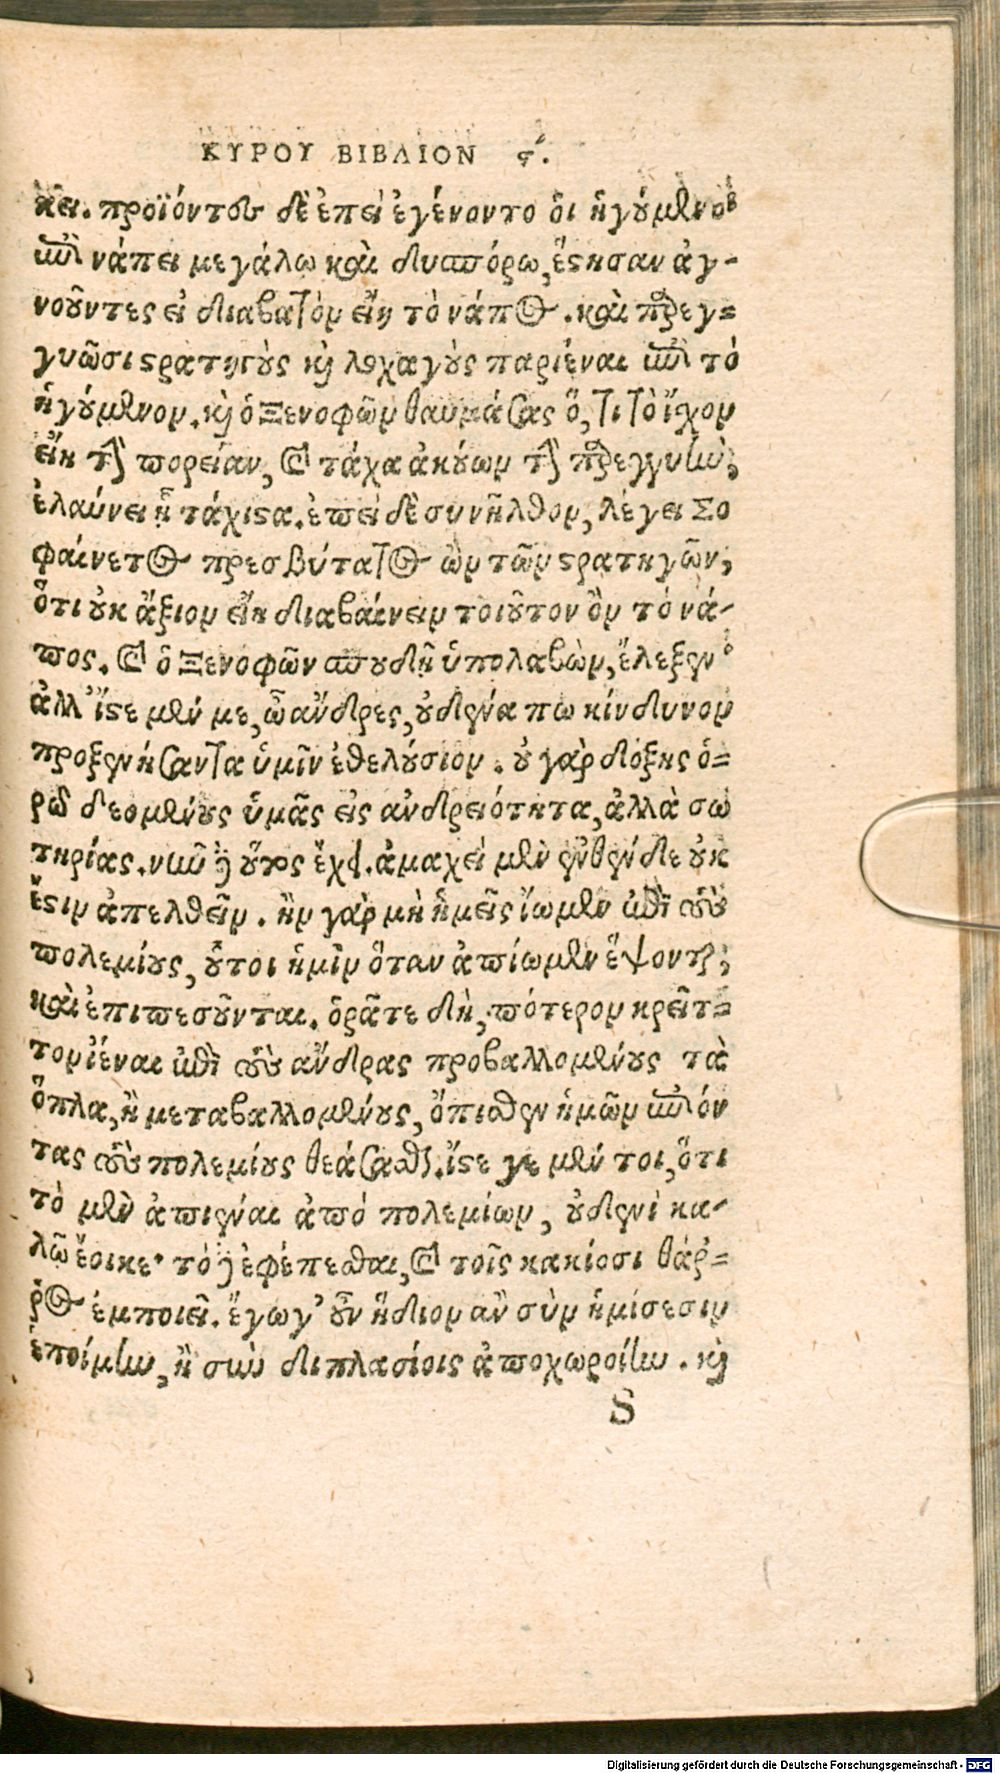 ΚΥΡΟΥ ΒΙΒΛΙΟΝ ϛ΄.
κει. προϊόντων δὲ ἐπεὶ ἐγένοντο ὁι ἡγούμενοι
ἐπὶ νάπει μεγάλῳ καὶ δυσπόρῳ, ἔστησαν ἀγ-
νοοῦντες εἰ διαβατὸν εἴη τὸ νάπος. καὶ παρεγ-
γυῶσι στρατηγοὺς καὶ λοχαγοὺς παριέναι ἐπὶ τὸ
ἡγούμενον. καὶ ὁ Ξενοφῶν θαυμάσας ὅ, τι τὸ ἴχον
εἴη τὴν πορείαν, καὶ τάχα ἀκούων τὴν παρεγγυὴν,
ἐλαύνει ᾗ τάχιστα. ἐπεὶ δὲ συνῆλθον, λέγει Σο
φαίνετος πρεσβύτατος ὢν τῶν στρατηγῶν,
ὅτι οὐκ ἄξιον εἴη διαβαίνειν τοιοῦτον ὂν τὸ νά-
πος. καὶ ὁ Ξενοφῶν σπουδῇ ὑπολαβὼν, ἔλεξεν·
ἀλλ' ἴστε μέν με, ὦ ἄνδρες, οὐδένα πω κίνδυνον
προξενήσαντα ὑμῖν ἐθελούσιον. οὐ γὰρ δόξης ὁ-
ρῶ δεομένους ὑμᾶς εἰς ἀνδρειότητα, ἀλλὰ σω
τηρίας. νῦν δὲ οὕτως ἔχει. ἀμαχεὶ μὲν ἐνθένδε οὐκ
ἔστιν ἀπελθεῖν. ἢν γὰρ μὴ ἡμεῖς ἴωμεν ἐπὶ τοὺς
πολεμίους, οὗτοι ἡμῖν ὅταν ἀπίωμεν ἕψονται,
καὶ ἐπιπεσοῦνται. ὁρᾶτε δὴ, πότερον κρεῖτ-
τον ἰέναι ἐπὶ τοὺς ἄνδρας προβαλλομένους τὰ
ὅπλα, ἢ μεταβαλλομένους, ὄπισθεν ἡμῶν ἐπιόν
τας τοὺς πολεμίους θεάσασθαι. ἴστε γε μέν τοι, ὅτι
τὸ μὲν ἀπιέναι ἀπὸ πολεμίων, οὐδενὶ κα-
λῷ ἔοικε· τὸ δὲ ἐφέπεσθαι, καὶ τοῖς κακίοσι θάρ-
ρος ἐμποιεῖ. ἔγωγ' οὖν ἥδιον ἂν σὺν ἡμίσεσιν
ἑποίμην, ἢ σὺν διπλασίοις ἀποχωροίην. καὶ
S
Digitalisierung gefördert durch die Deutsche Forschungsgemeinschaft - DFG